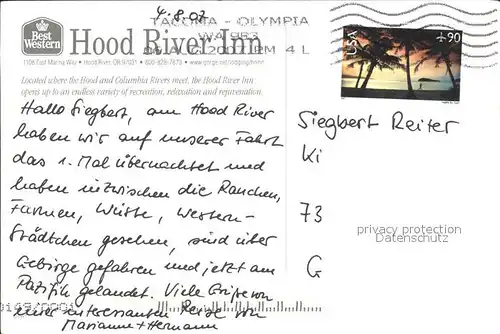 4.8.07
TACOMA - OLYMPIA
WA 983
2007 PM 4 L
Best
Western
Hood River Inn
1108 East Marina Way • Hood River, OR 97031 • 800-828-7873 •
Located where the Hood and Columbia Rivers meet, the Hood River Inn
opens up to an endless variety of recreation, relaxation and rejuvenation.
USA
90
Hallo Siegbert, am Hood River
haben wir auf unserer Fahrt
das 1. Mal übernachtet und
haben inzwischen die Ranchen,
Farmen, Wüste, Western-
städtchen gesehen, sind über
Gebirge gefahren und jetzt am
Pazifik gelandet. Viele Grüße von
einer interessanten Reise von
Marianne + Hermann
Siegbert Reiter
Ki
73
G
privacy protection
Datenschutz